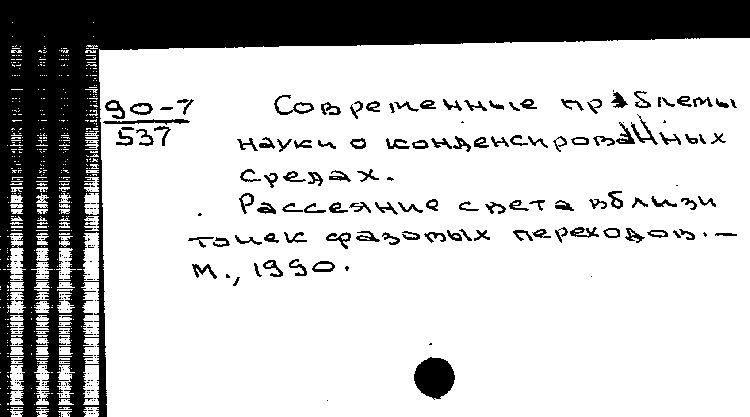 90-7 Современные проблемы
537 науки о конденсированных
средах.
Рассеяние света вблизи
точек фазовых переходов. —
М., 1990.